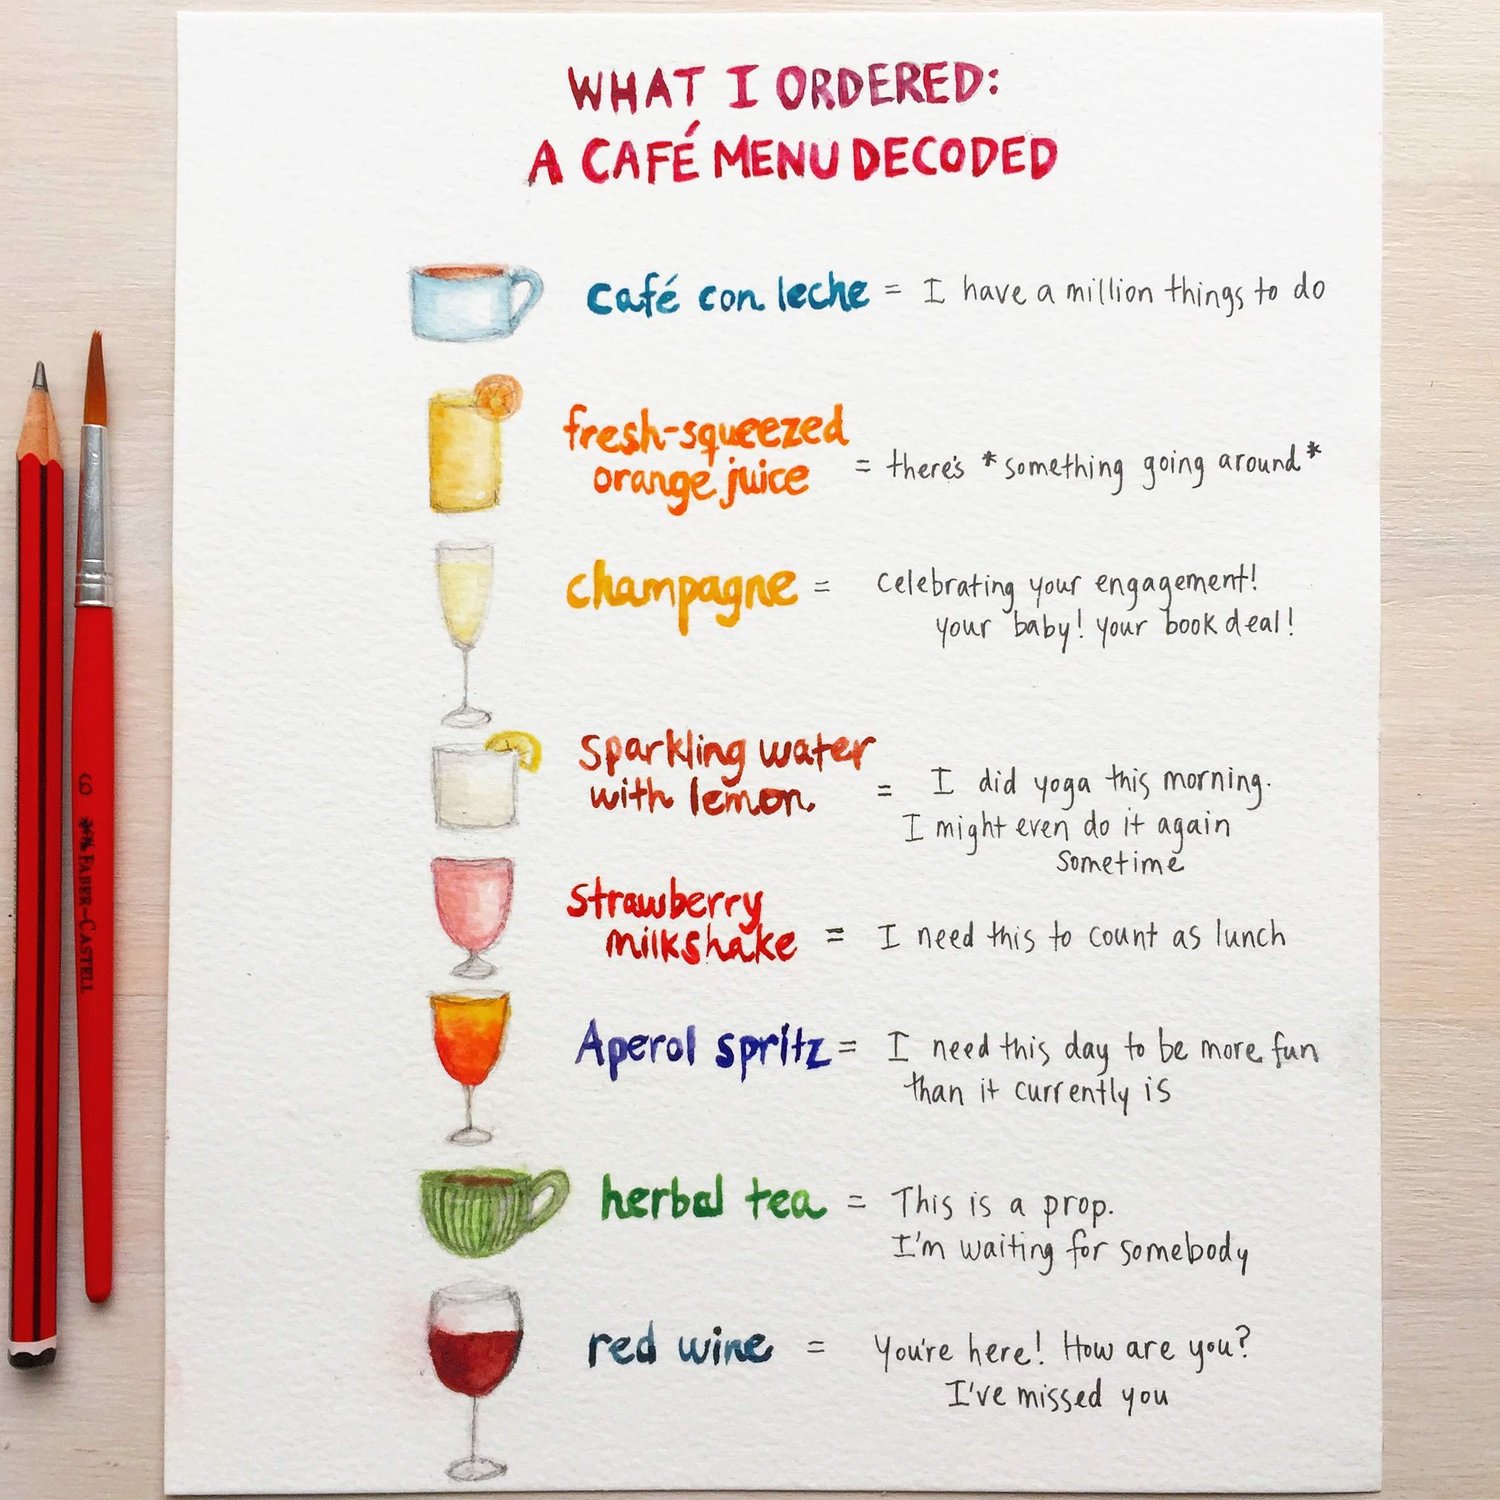 WHAT I ORDERED:
A CAFÉ MENU DECODED
café con leche = I have a million things to do
fresh-squeezed
orange juice = there's *something going around*
champagne = celebrating your engagement!
your baby! your book deal!
sparkling water
with lemon = I did yoga this morning.
I might even do it again
sometime
strawberry
milkshake = I need this to count as lunch
Aperol spritz = I need this day to be more fun
than it currently is
herbal tea = This is a prop.
I'm waiting for somebody
red wine = You're here! How are you?
I've missed you
6 FABER-CASTELL